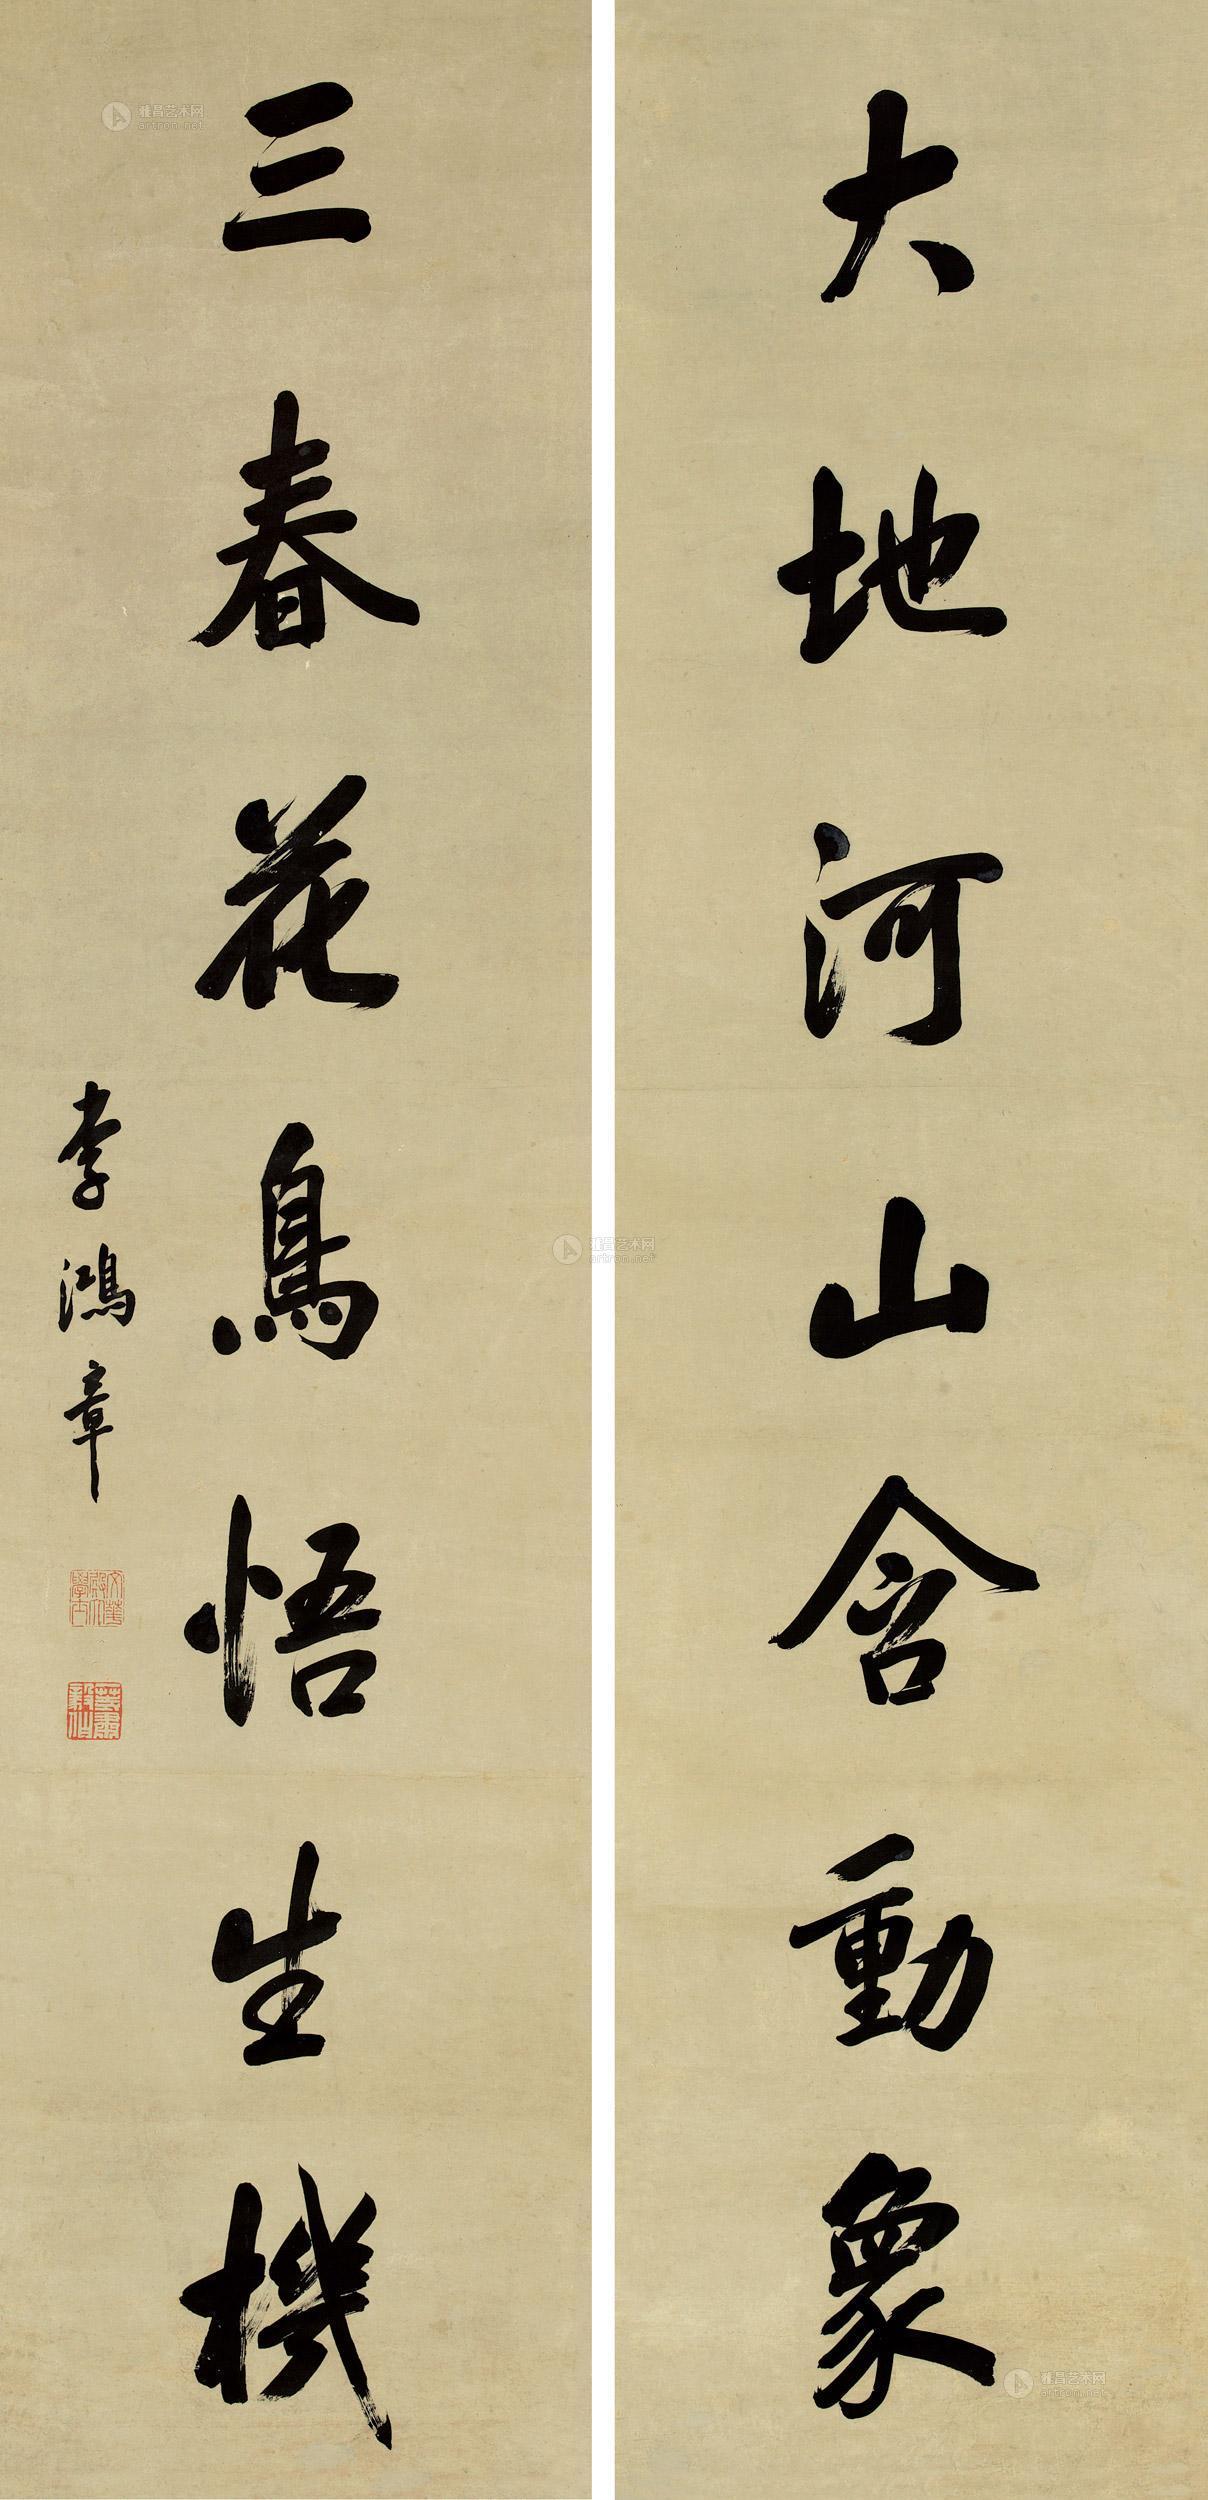 大地河山含動象
三春花鳥悟生機
李鴻章
文華殿大學士
肅毅伯
雅昌艺术网
artron.net
雅昌艺术网
artron.net
雅昌艺术网
artron.net